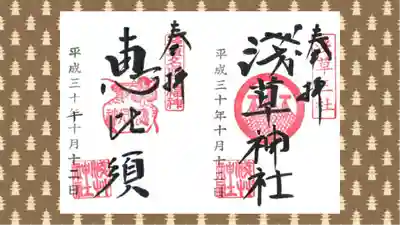 奉拝
浅草神社
平成三十年十月十二日
奉拝
恵比須
平成三十年十月十二日